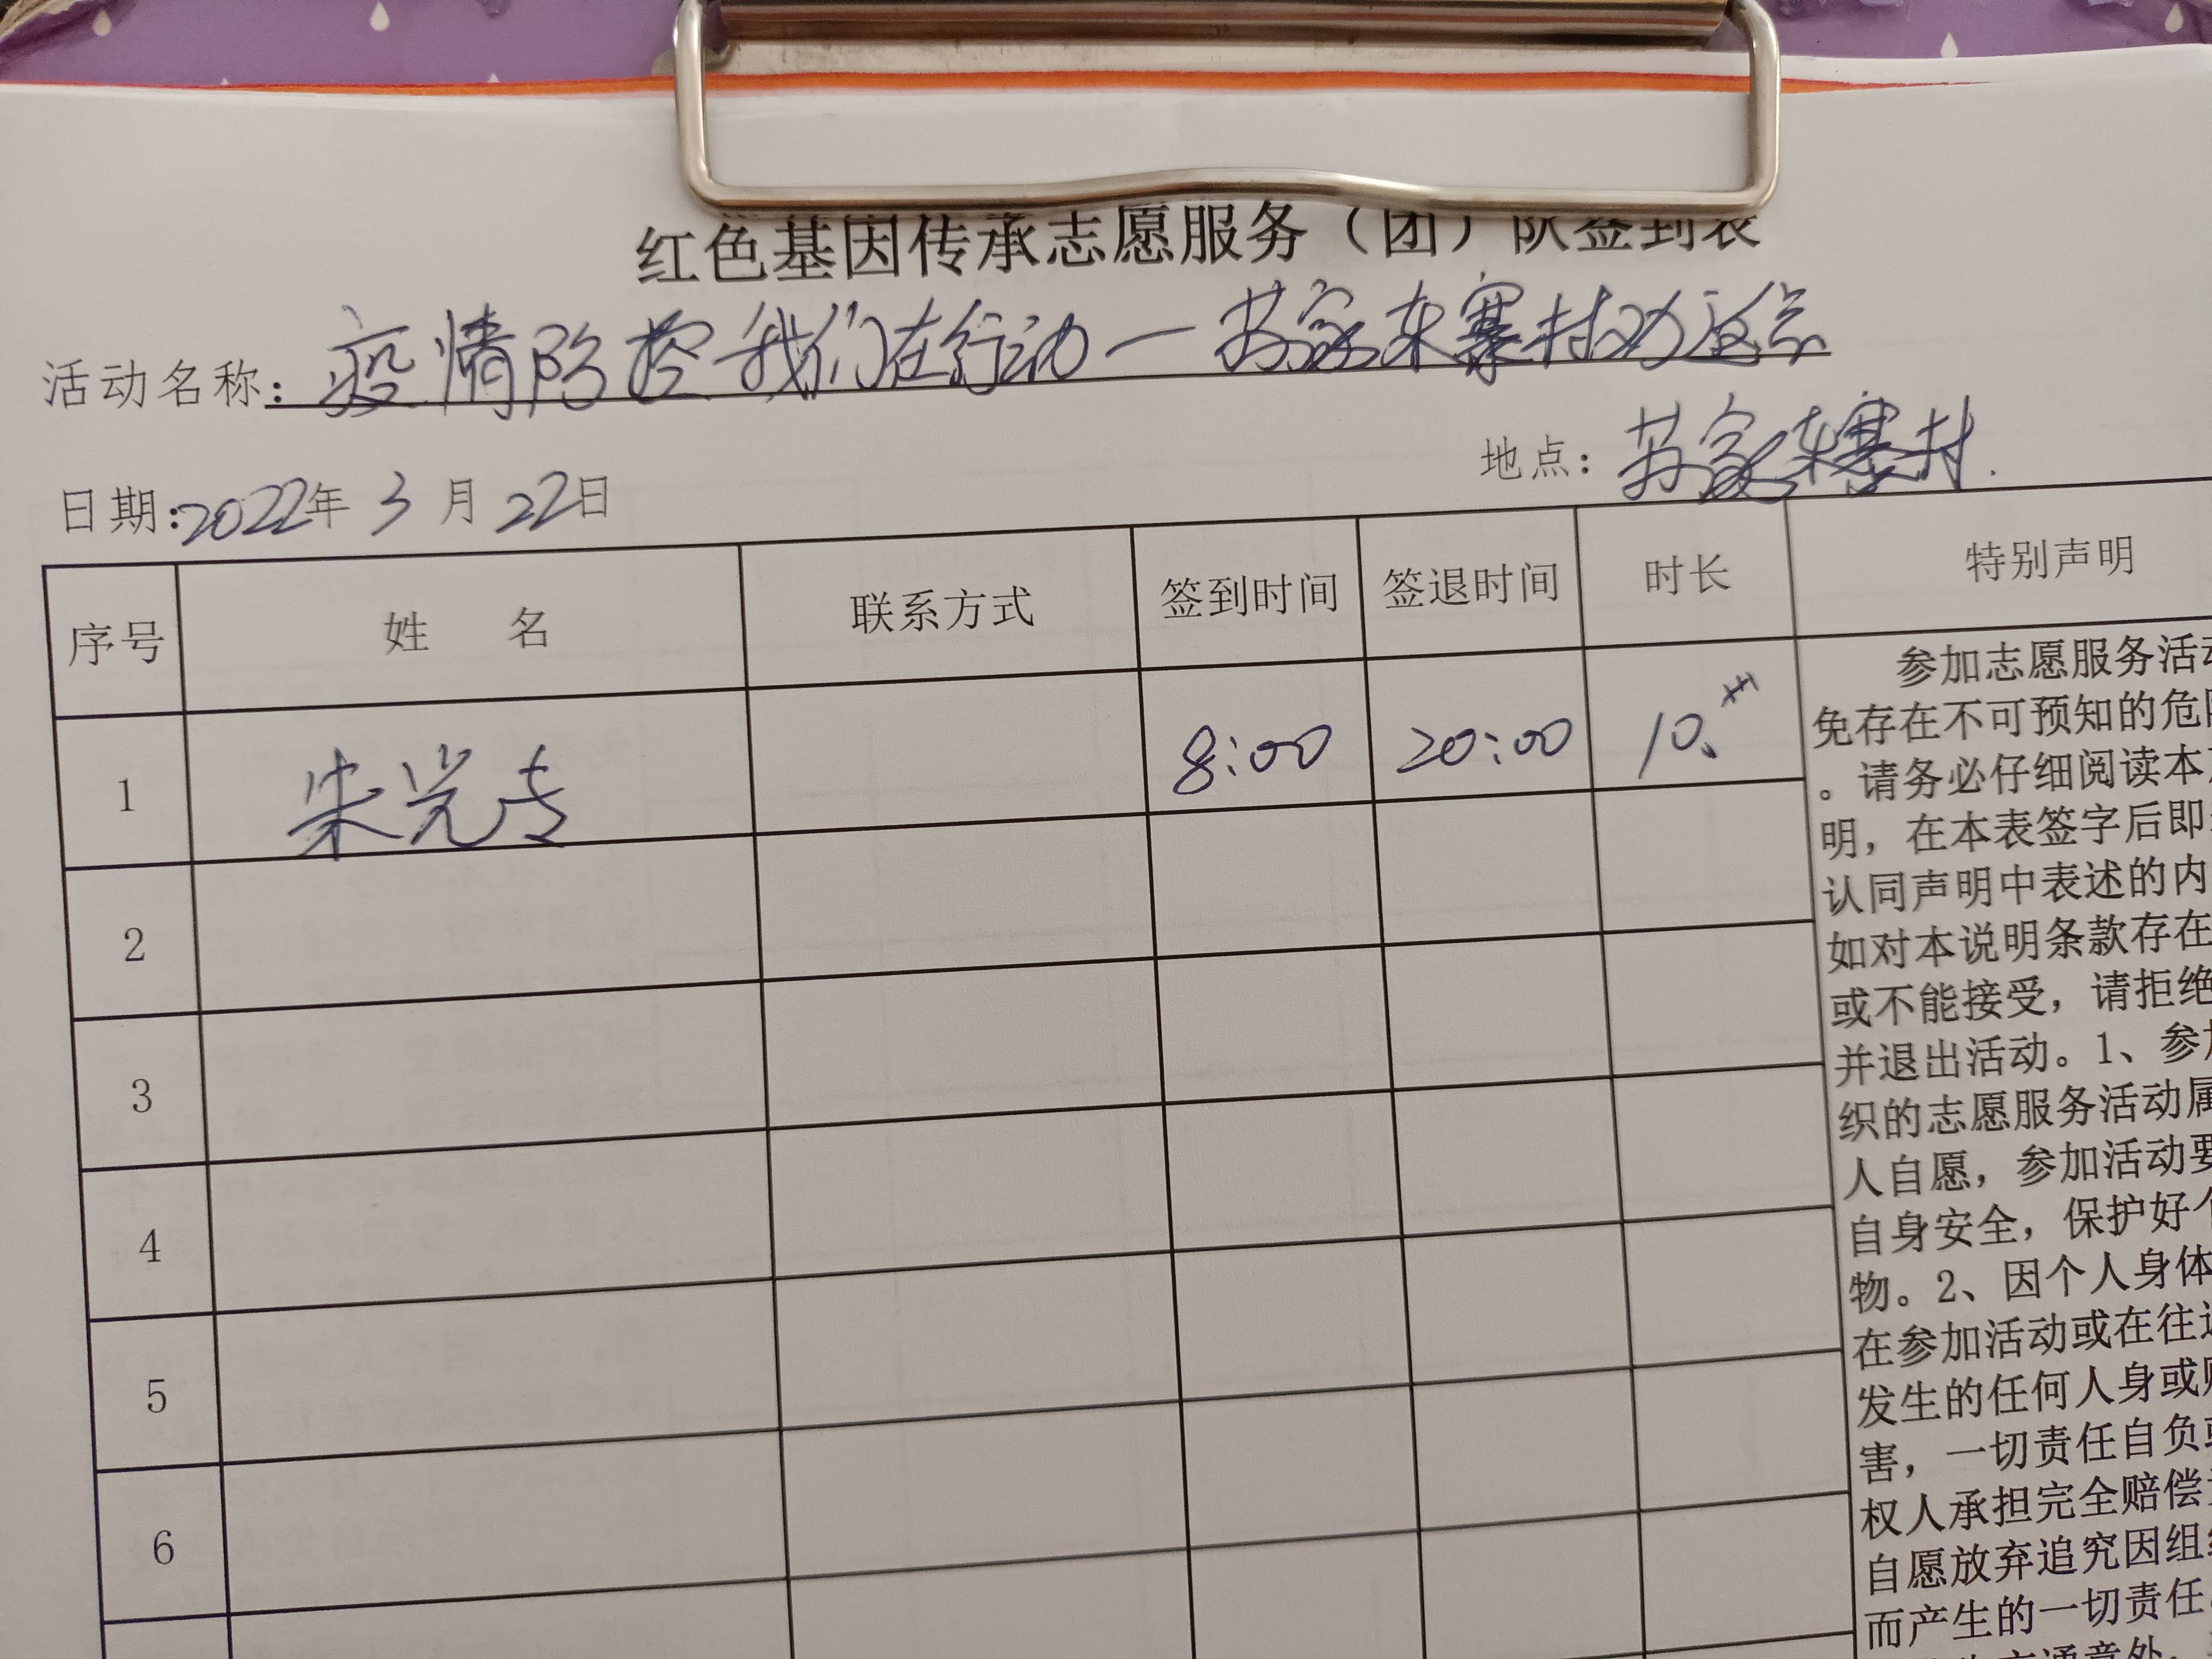 红色基因传承志愿服务（团）队签到表
活动名称：疫情防控我们在行动一苏家东寨村劝返点
日期：2022年3月22日 地点：苏家东寨村.
序号 姓 名 联系方式 签到时间 签退时间 时长 特别声明
1 朱光 8:00 20:00 10.
2
3
4
5
6
参加志愿服务活动
免存在不可预知的危险
。请务必仔细阅读本
明，在本表签字后即
认同声明中表述的内
如对本说明条款存在
或不能接受，请拒绝
并退出活动。1、参加
织的志愿服务活动属
人自愿，参加活动要
自身安全，保护好个
物。2、因个人身体
在参加活动或在往返
发生的任何人身或
害，一切责任自负或
权人承担完全赔偿
自愿放弃追究因组织
而产生的一切责任